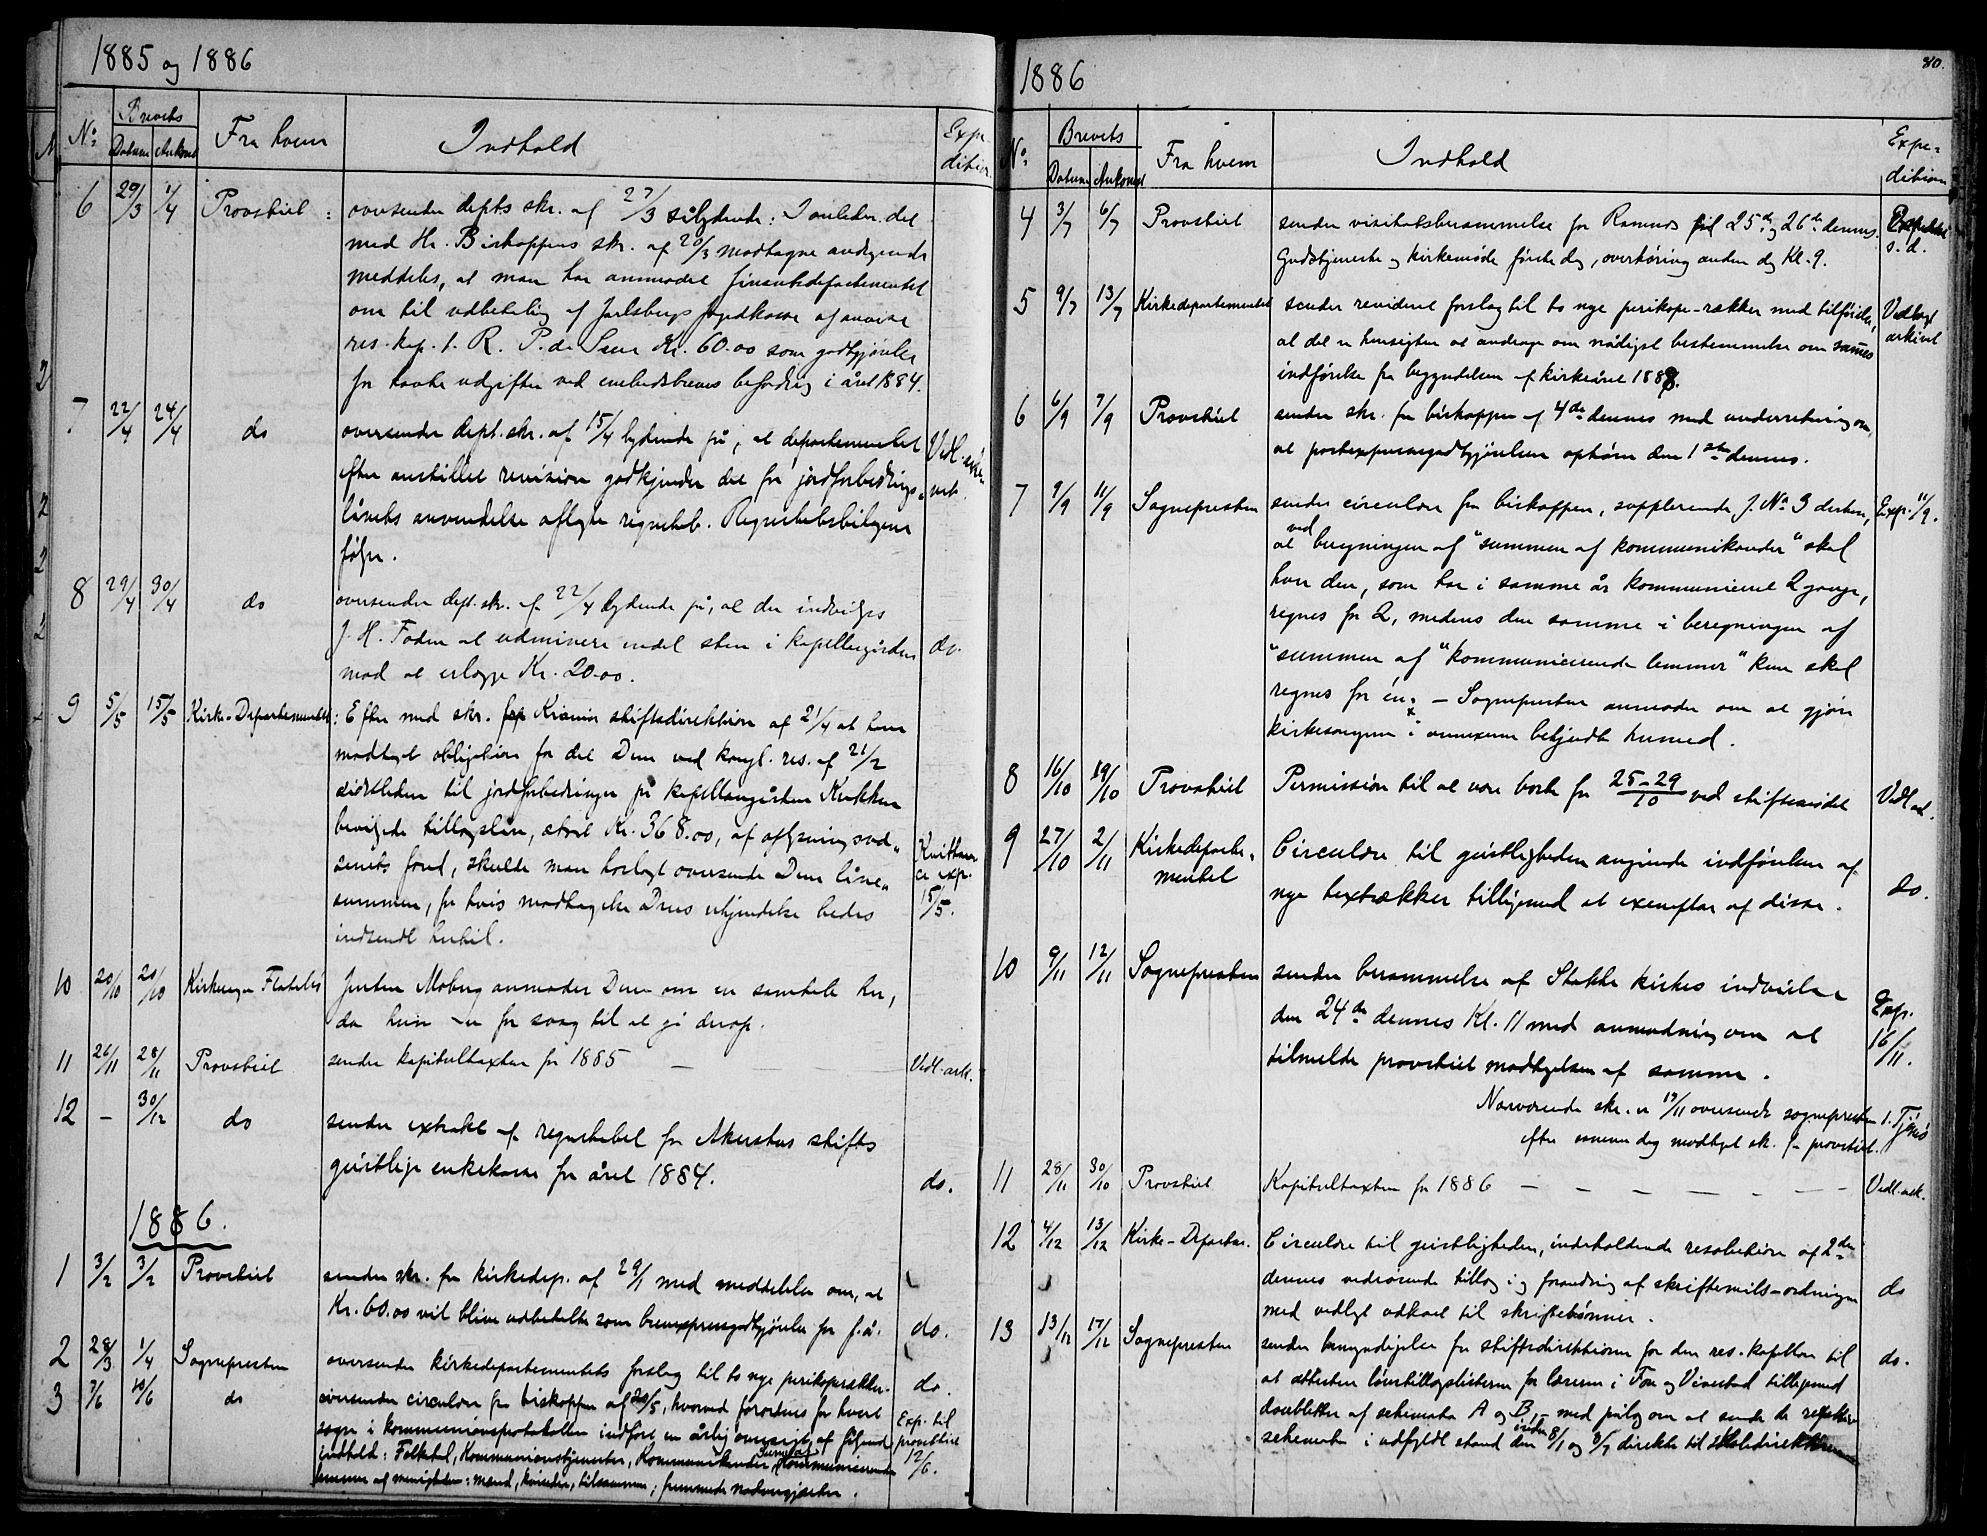 1885 og 1886
No. Brevets Fra hvem Indhold Expe
Datum Ankomst dition.
6 29/3 1/4 Provstiet: oversender depts skr. af 27/3 sålydende: I anledn. det
med Hr. Biskoppens skr. af 20/3 modtagne andragende
meddeles, at man har anmodet finantsdepartementet
om til udbetaling af Jarlsbergs fogedkasse at anvise
res. kap. t. R. P. de Seue Kr. 60.00 som godtgjørelse
for havte udgifter ved embedsbreves befordring i året 1884.
7 22/4 24/4 do oversender dept. skr. af 15/4 lydende på, at departementet Vedl.
efter anstillet revision godkjender det for jordforbedrings-
lånets anvendelse aflagte regnskab. Regnskabsbilagene
følger.
8 29/4 30/4 do oversender dept. skr. af 22/4 lydende på, at der indvilges
J. H. Foden at udminere endel sten i kapellangården do.
mod at erlægge Kr. 20.00.
9 5/5 15/5 Kirke-Departementet: Efter med skr. fra Kr.ania stiftsdirektion af 21/4 at have
modtaget obligation for det Dem ved kongl. res. af 21/2
sidstleden til jordforbedringer på kapellangården
bevilgede tillægslån, stort Kr. 368.00, af oplysningsvæ-
senets fond, skulde man hoslagt oversende Dem låne-
summen, for hvis modtagelse Deres erkjendelse bedes 15/5.
indsendt hertil.
10 20/10 20/10 Kirkesanger Jenten Moberg anmoder Dem om en samtale her,
da hun er for svag til at gå derop.
11 26/11 28/11 Provstiet sender kapitelstaxten for 1885 — — Vedl. ark.
12 - 30/12 do sender extrakt af regnskabet for Akershus stifts
geistlige enkekasse for året 1884. do.
1886.
1 3/2 3/2 Provstiet sender skr. fra kirkedep. af 29/1 med meddelelse om, at
Kr. 60.00 vil blive udbetalt som brevexpressgodtgjørelse for f. å. do.
2 28/3 1/4 Sognepresten oversender kirkedepartementets forslag til to nye perikoperækker. do.
3 7/6 10/6 do oversender circulære fra biskoppen af 20/5, hvorved forordnes for hvert Exp. til
sogn i kommunionsprotokollen indført en årlig oversigt af følgende provstiet
indhold: Folketal, Kommunionstjenester, Kommunikanter, Kommunicerende 12/6.
lemmer af menigheden: mænd, kvinder, tilsammen; fremmede nadvergjæster.
1886 80.
No. Brevets Fra hvem Indhold Expe-
Datum Ankomst dition
4 3/7 6/7 Provstiet sender visitatsberammelse for Ramnes til 25de og 26de dennes. Expederet
Gudstjeneste og kirkemøde første dag, overhøring anden dag Kl. 9. s. d.
5 9/7 13/7 Kirkedepartementet sender revideret forslag til to nye perikope-rækker med tilføielse, Vedlagt
at det er hensigten at andrage om nådigst bestemmelse om sammes arkivet
indførelse fra begyndelsen af kirkeåret 1888.
6 6/9 7/9 Provstiet sender skr. fra biskoppen af 4de dennes med underretning om,
at postexpressegodtgjørelsen ophører den 1ste dennes.
7 9/9 11/9 Sognepresten sender circulære fra biskoppen, supplerende J. No 3 dertil, Exp. 11/9.
at ved beregningen af "summen af kommunikanter" skal
hver den, som har i samme år kommuniceret 2 gange,
regnes for 2, medens den samme i beregningen af
"summen af "kommunicerende lemmer" kun skal
regnes for én. — Sognepresten anmoder om at gjøre
kirkesangerne i annexerne bekjendt hermed.
8 16/10 19/10 Provstiet Permission til at være borte fra 25-29/10 ved stiftsmødet Vedl. ark.
9 27/10 2/11 Kirkedeparte- Circulære til geistligheden angående indførelsen af
mentet nye textrækker tilligemed et exemplar af disse. do.
10 9/11 12/11 Sognepresten sender berammelse af Stokke kirkes indvielse Exp.
den 24de dennes Kl. 11 med anmodning om at 16/11.
tilmelde provstiet modtagelsen af samme.
Nærværende skr. er 17/11 oversendt sognepresten t. Tjømø
efter samme dag modtaget sk. fra provstiet.
11 28/11 30/10 Provstiet Kapitelstaxten for 1886 — — — — — — — Vedl. ark.
12 4/12 13/12 Kirke-Departm. Circulære til geistligheden, indeholdende resolution af 2den
dennes vedrørende tillæg i og forandring af skriftemåls-ordningen do
med vedlagt udkast til skriftebønner.
13 13/12 17/12 Sognepresten sender bemyndigelse fra stiftsdirektionen for den res. kapellan til do.
at attestere lønstillægslisterne for lærerne i Fon og Vivestad tilligemed
doubletter af schemata A og B, — med pålæg om at sende de
schemater i udfyldt stand inden 8/1 og 8/7 direkte til skoledirektøren